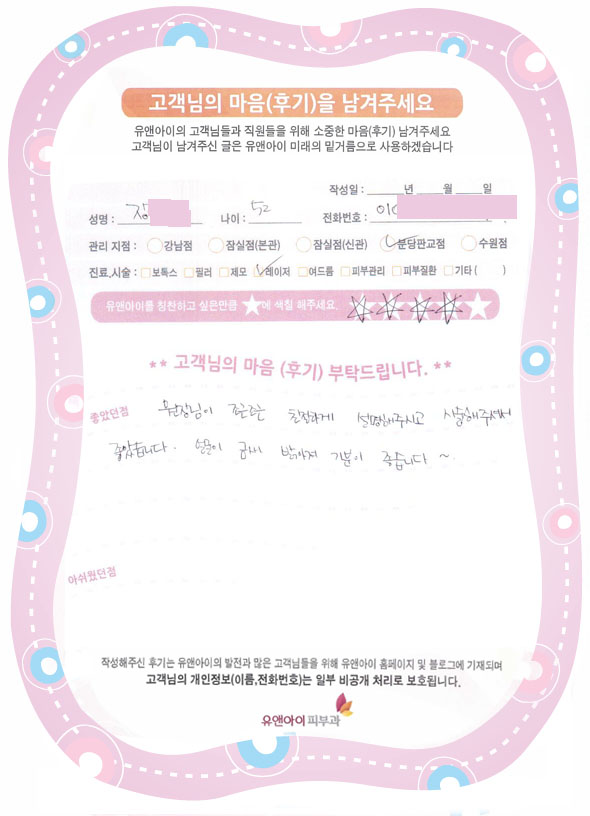 고객님의 마음(후기)을 남겨주세요
유앤아이의 고객님들과 직원들을 위해 소중한 마음(후기) 남겨주세요
고객님이 남겨주신 글은 유앤아이 미래의 밑거름으로 사용하겠습니다
작성일 : 년 월 일
성명 : 장 나이 : 52 전화번호 : 010
관리 지점 : 강남점 잠실점(본관) 잠실점(신관) 분당판교점 수원점
진료,시술 : 보톡스 필러 제모 레이저 여드름 피부관리 피부질환 기타 ( )
유앤아이를 칭찬하고 싶은만큼 ★에 색칠 해주세요.
** 고객님의 마음 (후기) 부탁드립니다. **
좋았던점 원장님이 친절하게 설명해주시고 시술해주셔서
좋았습니다. 금새 밝아져 기분이 좋습니다 ~
아쉬웠던점
작성해주신 후기는 유앤아이의 발전과 많은 고객님들을 위해 유앤아이 홈페이지 및 블로그에 기재되며
고객님의 개인정보(이름,전화번호)는 일부 비공개 처리로 보호됩니다.
유앤아이피부과